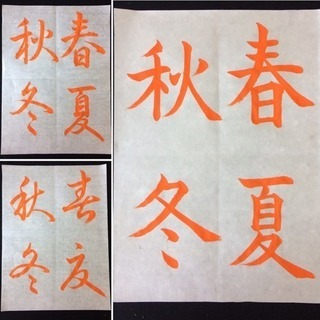 春夏
秋冬
春夏
秋冬
春夏
秋冬